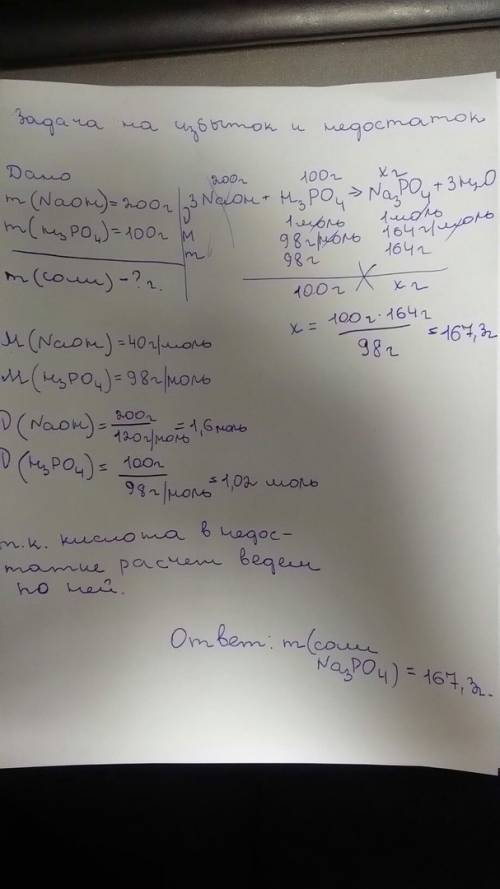 Задача на избыток и недостаток
Дано
m(NaOH)=200г
m(H₃PO₄)=100г
m(соли)-?г.
200г 100г xг
3NaOH + H₃PO₄ → Na₃PO₄ + 3H₂O
ν 1моль 1моль
M 98г/моль 164г/моль
m 98г 164г
100г xг
x = 100г·164г / 98г = 167,3г
M(NaOH)=40г/моль
M(H₃PO₄)=98г/моль
ν(NaOH)= 200г / 120г/моль =1,6моль
ν(H₃PO₄)= 100г / 98г/моль =1,02 моль
т.к. кислота в недос-
татке расчет ведем
по ней.
Ответ: m(соли
Na₃PO₄) = 167,3г.